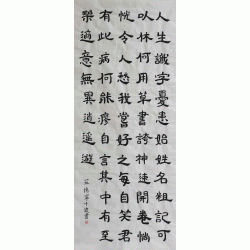 人生識字憂患始姓名粗記可
以休何用草書誇神速開卷惝
怳令人愁我嘗好之每自笑君
有此病何能瘳自言其中有至
樂適意無異逍遙遊